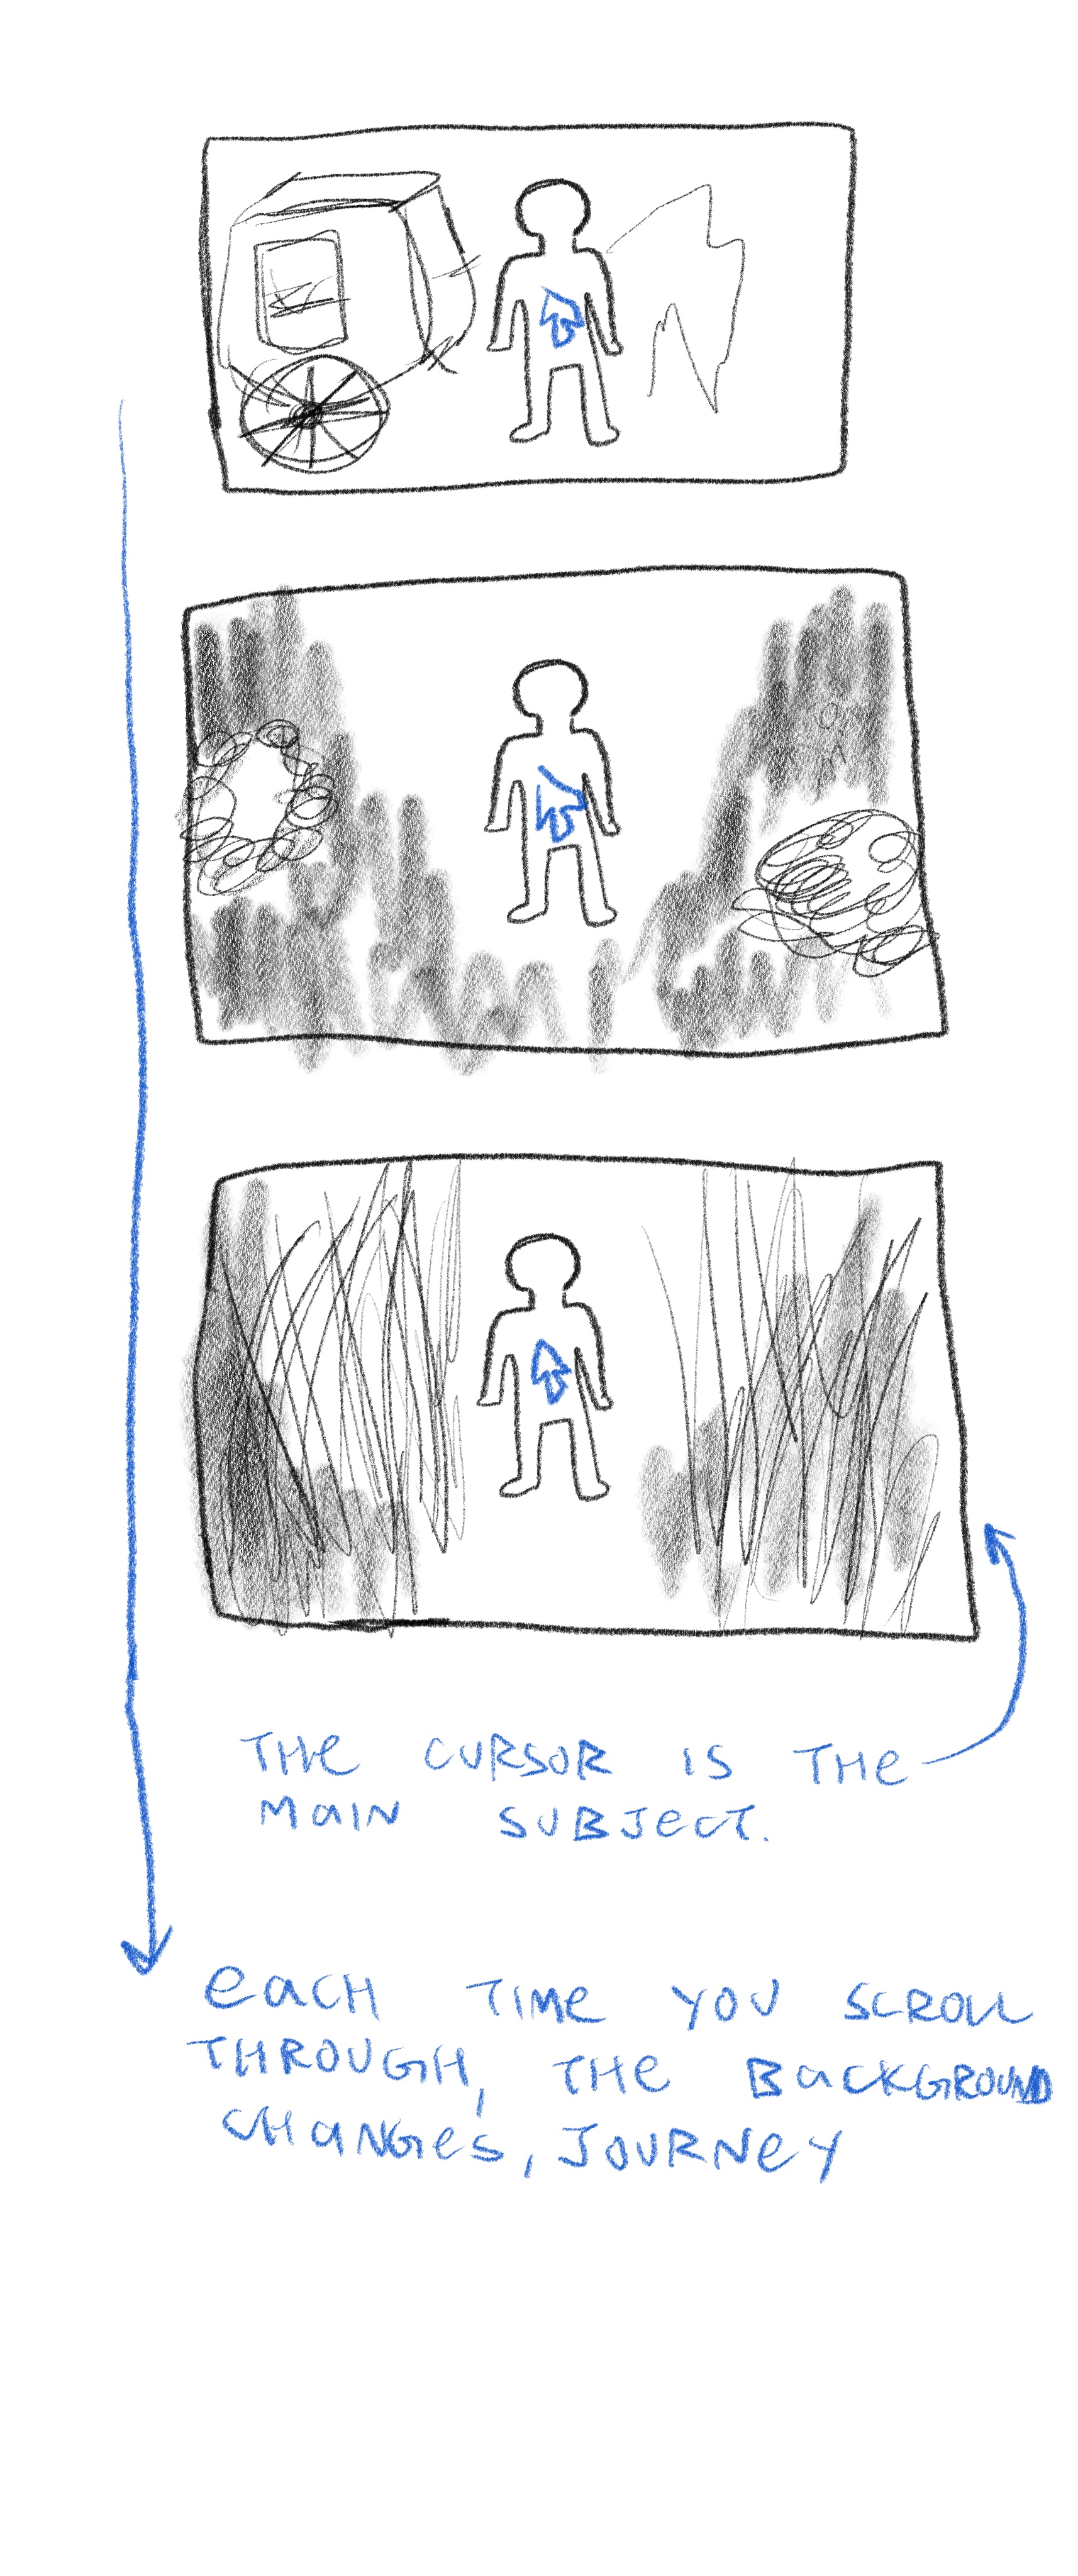 THE CURSOR IS THE
MAIN SUBJECT.
EACH TIME YOU SCROLL
THROUGH, THE BACKGROUND
CHANGES, JOURNEY